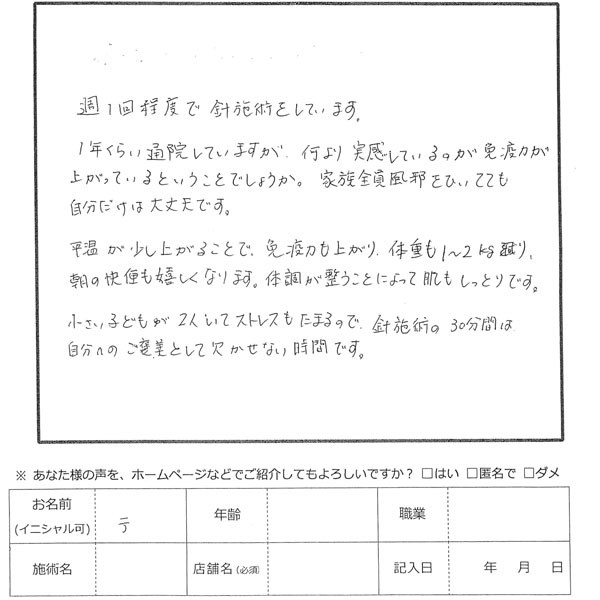 週1回程度で針施術をしています。
1年くらい通院していますが、何より実感しているのが免疫力が
上がっているということでしょうか。家族全員風邪をひいてても
自分だけは大丈夫です。
平温が少し上がることで、免疫力も上がり、体重も1～2kg減り、
朝の快便も嬉しくなります。体調が整うことによって肌もしっとりです。
小さい子どもが2人いてストレスもたまるので、針施術の30分間は
自分へのご褒美として欠かせない時間です。
※ あなた様の声を、ホームページなどでご紹介してもよろしいですか？ □はい □匿名で □ダメ
お名前
(イニシャル可) 〒 年齢 職業
施術名 店舗名(必須) 記入日 年 月 日